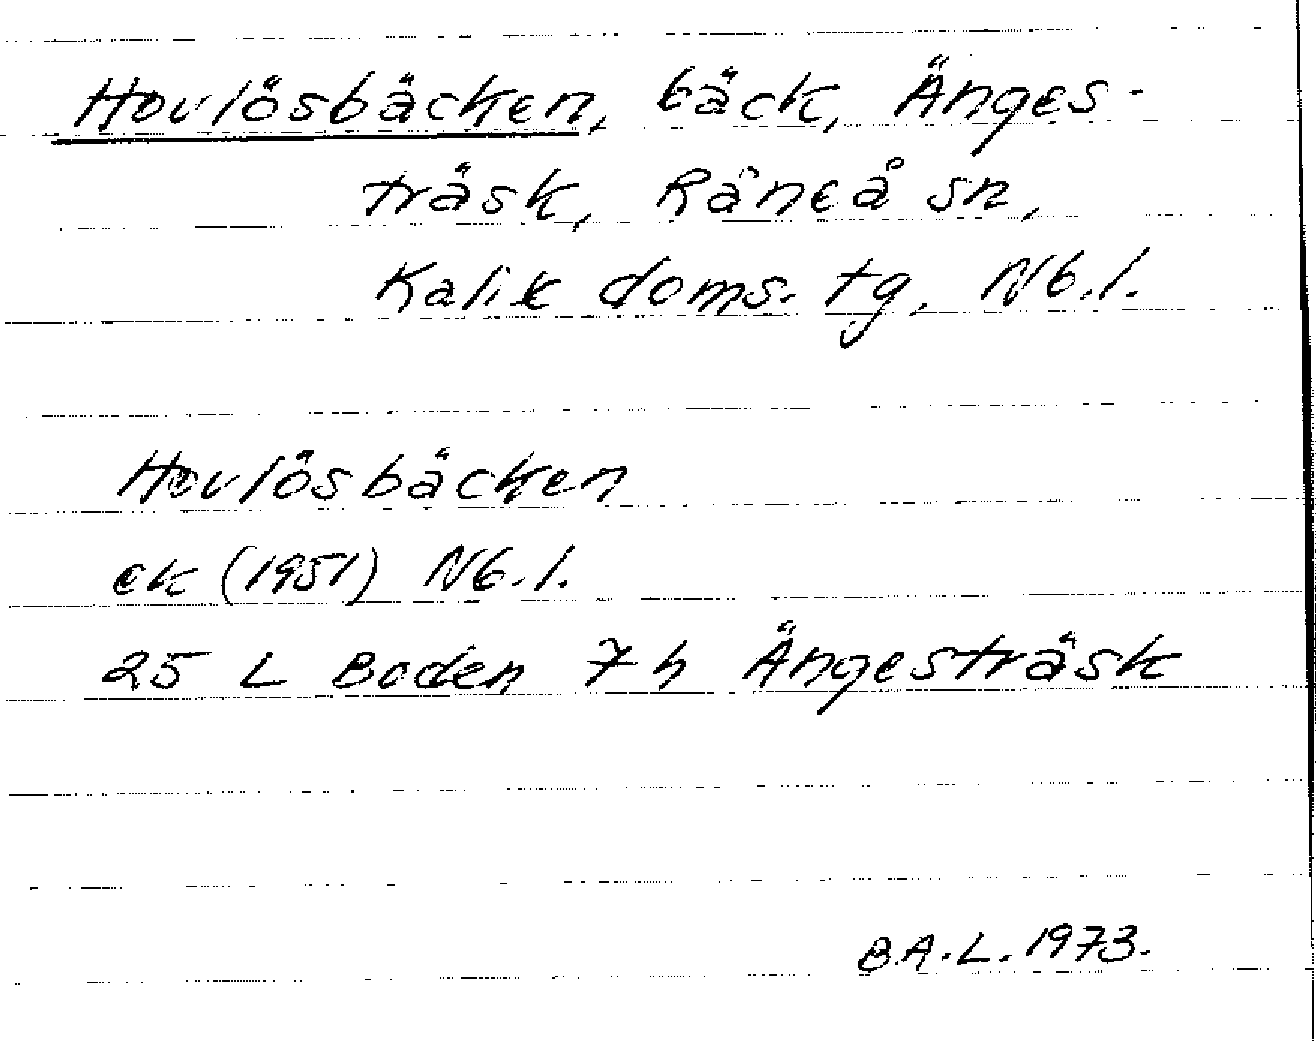 Hovlösbäcken, bäck, Änges-
träsk, Råneå sn,
Kalix doms. tg, Nb.l.
Hovlösbäcken
ek (1951) Nb.l.
25 L Boden 7 h Ängesträsk
B.A.L. 1973.